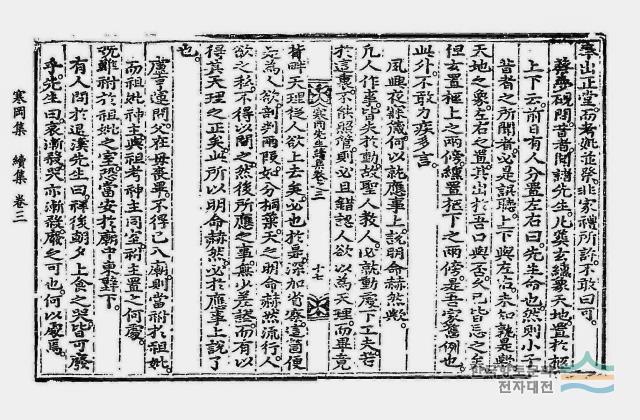 奉出正堂而考妣並祭非家禮所許不敢曰可
夢硯問昔者聞諸先生凡奠玄纁象天地置於柩
上下云前日有人分置左右曰先生命也然則小子
昔者之所聞者必是誤聽上下與左右未知孰是歟
天地之象左右之置並出於吾口與否久已皆忘之矣
但玄置柩上之兩傍纁置柩下之兩傍是吾家舊例也
此外不敢力疾多言
夙興夜寐箴何以就應事上說明命赫然歟
凡人作事皆失於動故聖人敎人必就動處下工夫若
於這裏不能照管則必且錯認人欲以為天理而畢竟
寒岡先生續集卷之三
十一
背畔天理從人欲上去矣必也於是深加省察這箇便
是為人欲剖判兩段如分桐葉天之明命赫然流行人
欲之私不得以間之然後所應之事無少差謬而有以
得其天理之正矣此所以明命赫然必於應事上說了
也
盧亨遠問父在母喪畢不得已入廟則當祔於祖妣
而祖妣神主與祖考神主同室祔主置之何處
旣雖祔於祖妣之室恐當安於廟中東壁下
有人問於退溪先生曰禫後朝夕上食之哭皆可廢
乎先生曰哀漸殺哭亦漸殺廢之可也何以處焉
寒岡集 續集 卷三
한국향토문화
전자대전